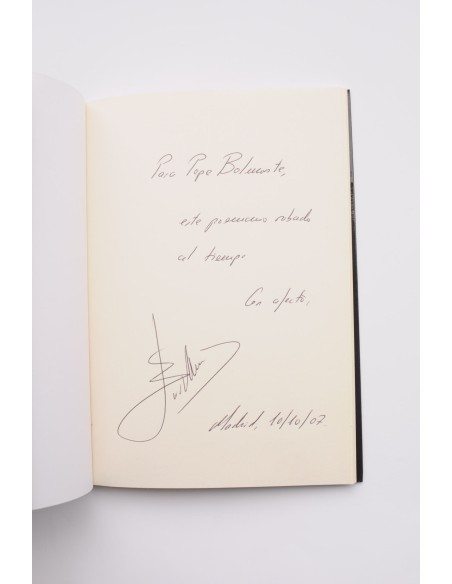 Para Pepe Belmonte,
este poemario robado
al tiempo.
Con afecto,
Madrid, 10/10/07